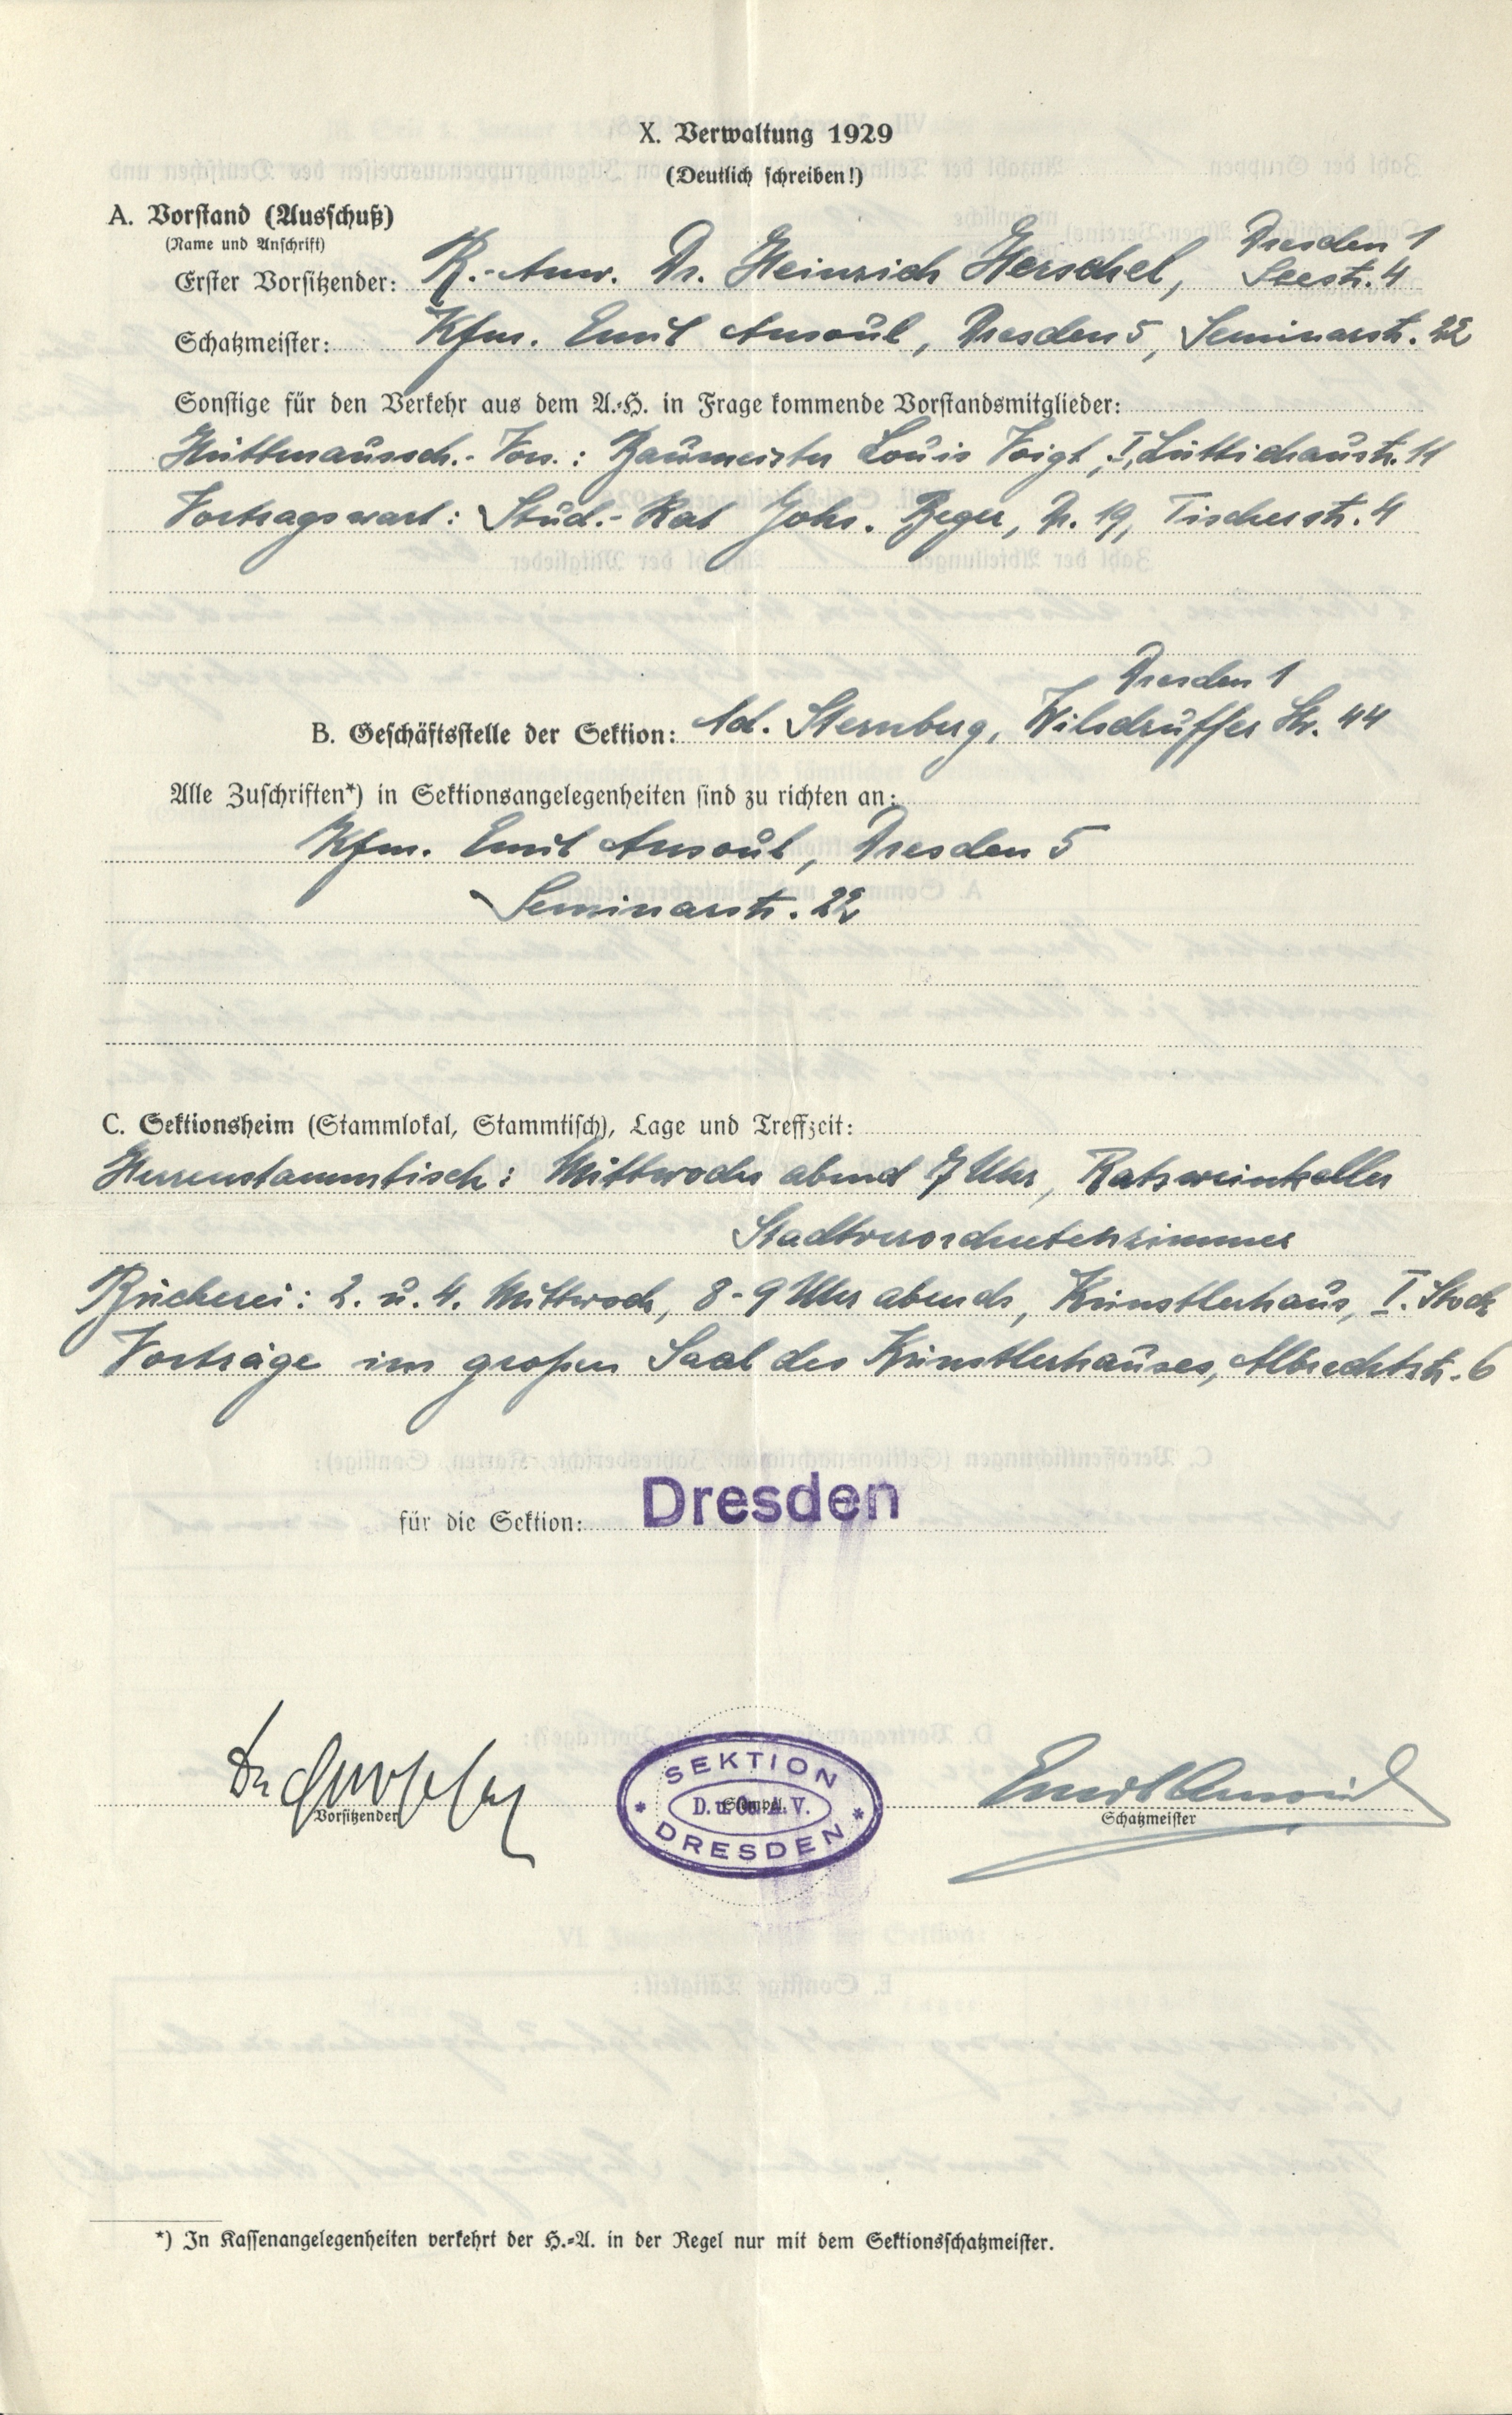 X. Verwaltung 1929
(Deutlich schreiben!)
A. Vorstand (Ausschuß)
(Name und Anschrift)
Dresden 1
Erster Vorsitzender: R.-Anw. Dr. Heinrich Herschel, Seestr. 4
Schatzmeister: Kfm. Emil Ansoul, Dresden 5, Seminarstr. 22
Sonstige für den Verkehr aus dem A.-H. in Frage kommende Vorstandsmitglieder:
Hüttenaussch.-Vors.: Baumeister Louis Voigt, I, Lüttichaustr. 11
Vortragswart: Stud.-Rat Johs. Beger, Dr. 19, Tischerstr. 4
Dresden 1
B. Geschäftsstelle der Sektion: Ad. Sternberg, Wilsdruffer Str. 44
Alle Zuschriften*) in Sektionsangelegenheiten sind zu richten an:
Kfm. Emil Ansoul, Dresden 5
Seminarstr. 22
C. Sektionsheim (Stammlokal, Stammtisch), Lage und Treffzeit:
Herrenstammtisch: Mittwochs abend 7 Uhr, Ratsweinkeller
Stadtverordnetenzimmer
Bücherei: 2. u. 4. Mittwoch, 8-9 Uhr abends, Künstlerhaus, I. Stock
Vorträge im großen Saal des Künstlerhauses, Albrechtstr. 6
für die Sektion: Dresden
SEKTION
D. u. Oe. A. V.
DRESDEN
Vorsitzender
Emil Ansoul
Schatzmeister
*) In Kassenangelegenheiten verkehrt der H.-A. in der Regel nur mit dem Sektionsschatzmeister.